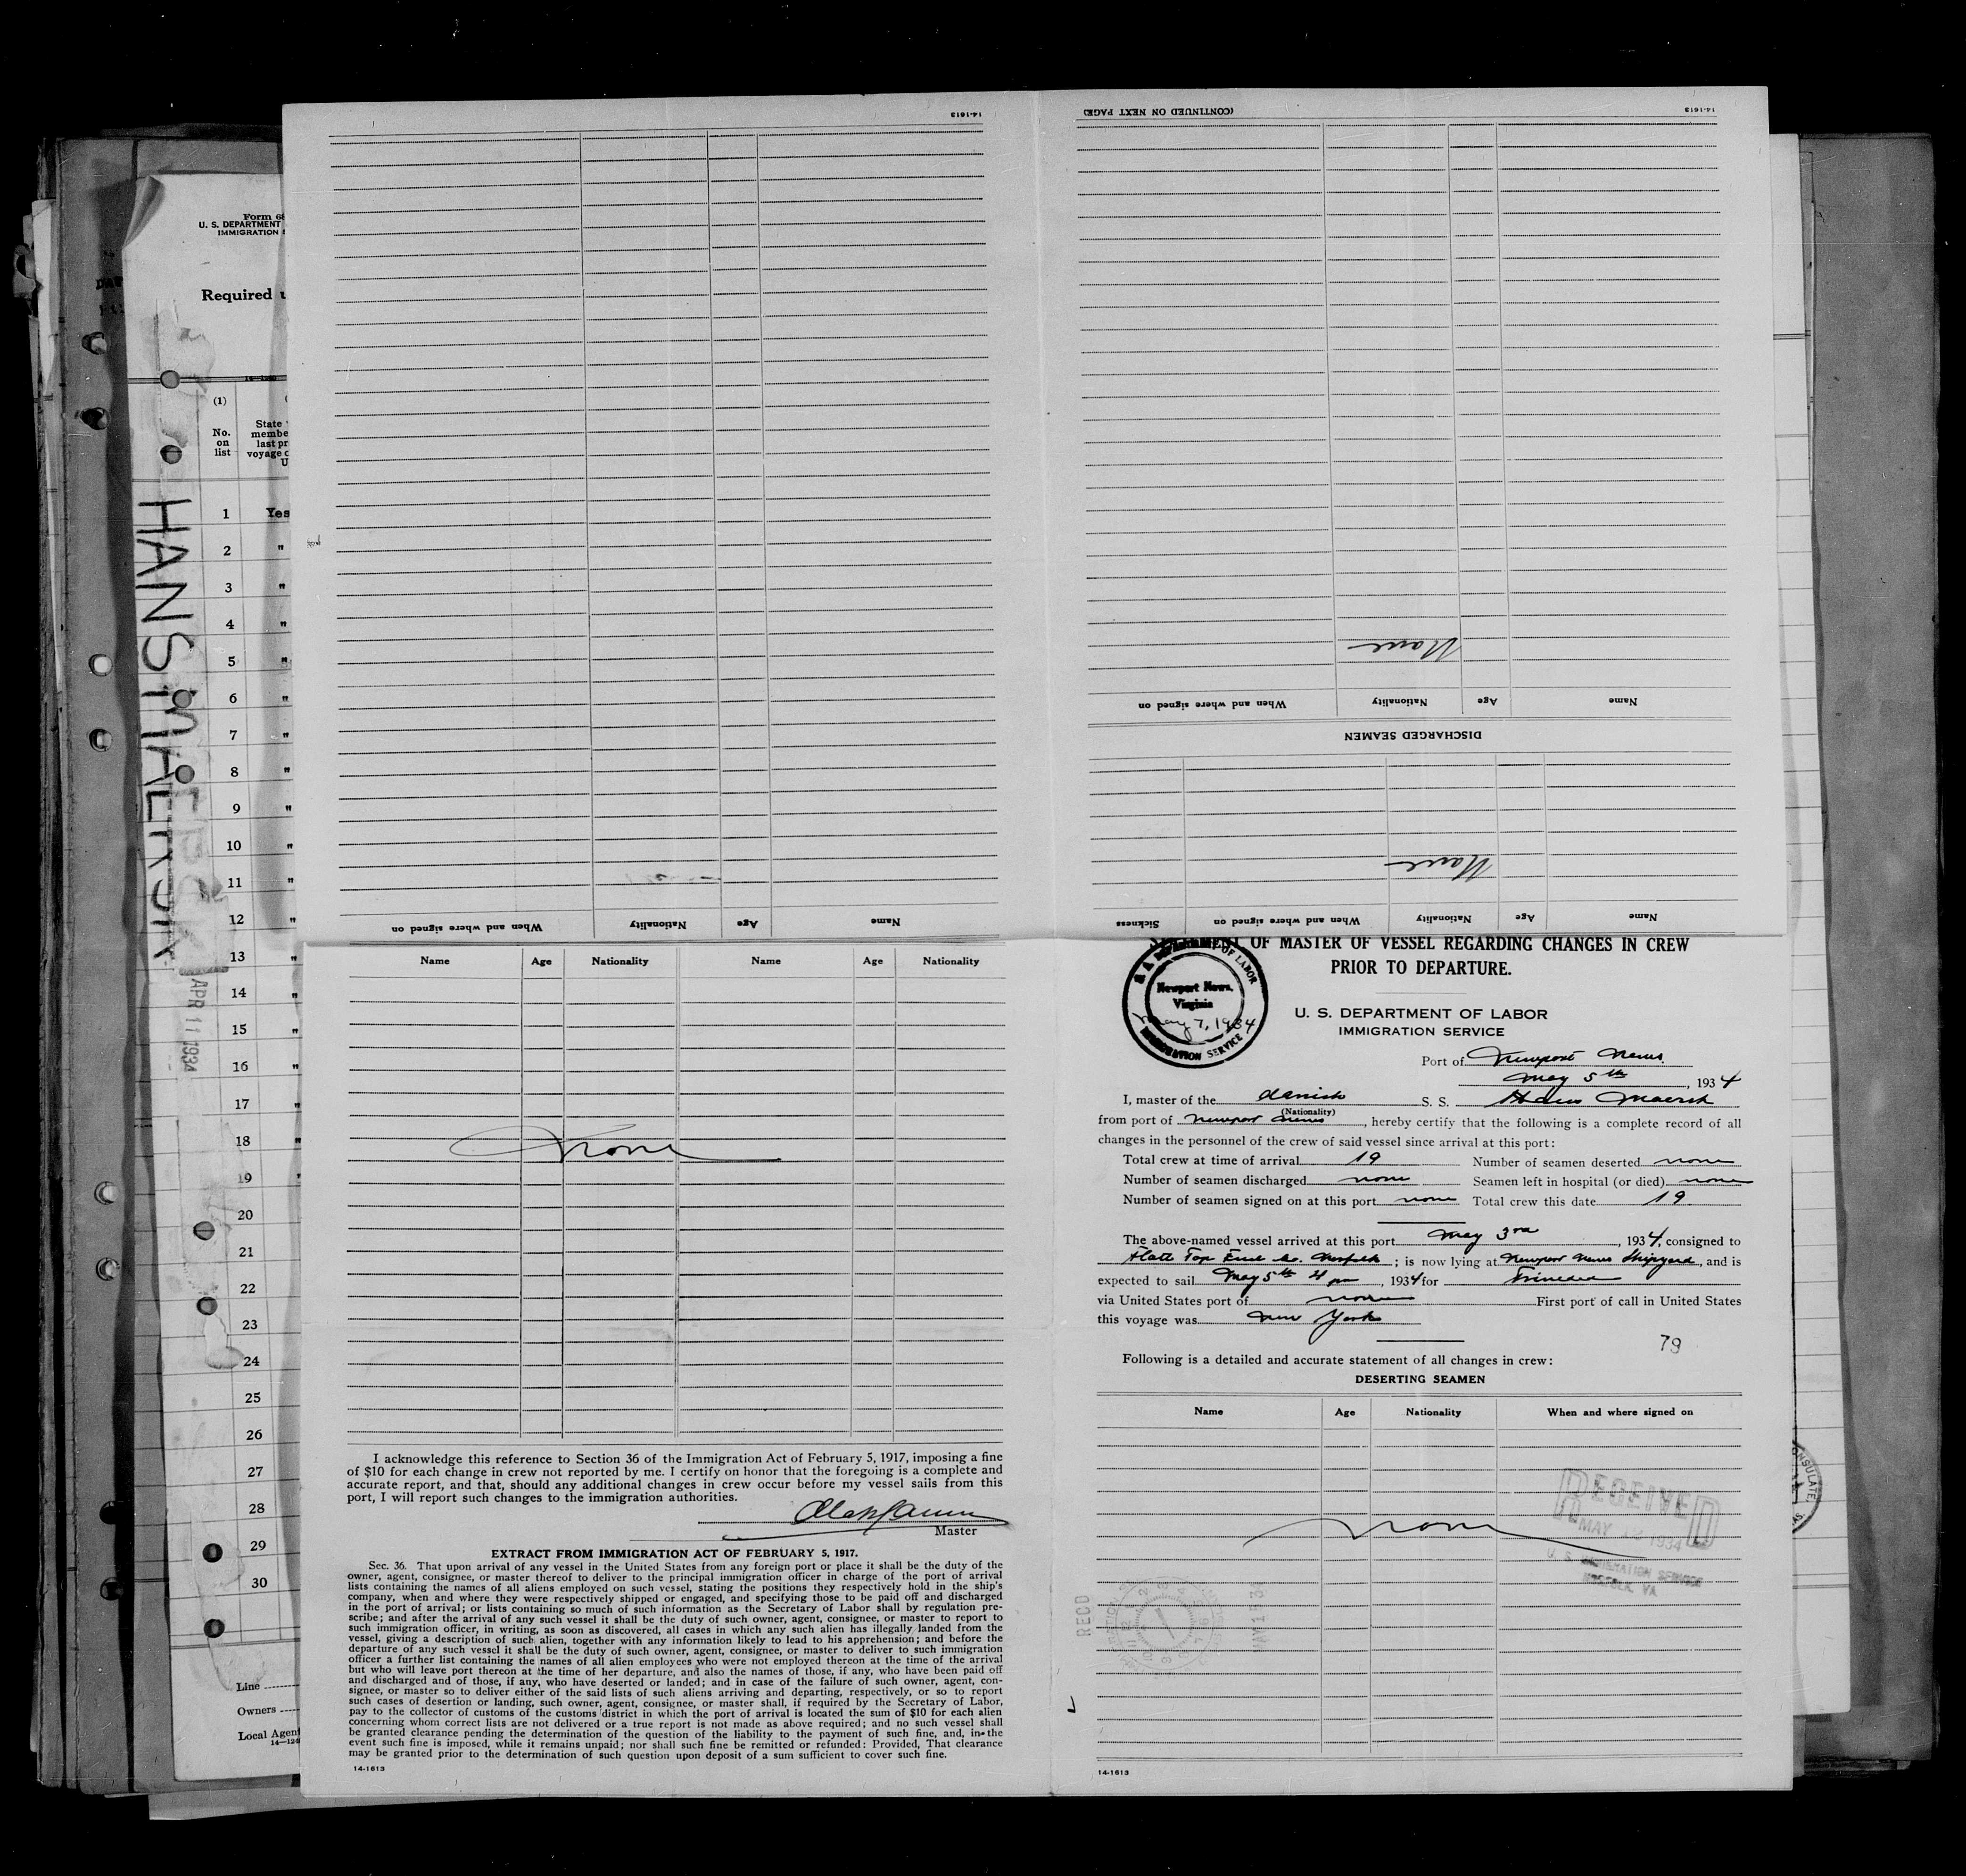 14-1613
(CONTINUED ON NEXT PAGE)
14-1613
None
When and where signed on Nationality Age Name
DISCHARGED SEAMEN
None
Sickness When and where signed on Nationality Age Name
When and where signed on Nationality Age Name
Form 68
U. S. DEPARTMENT
IMMIGRATION
Required u
(1)
No.
on
list
State
membe
last pr
voyage o
U
1 Yes
2 "
3 "
4 "
5 "
6 "
7 "
8 "
9 "
10 "
11 "
12 "
13 "
14 "
15 "
16 "
17 "
18 "
19 "
20
21
22
23
24
25
26
27
28
29
30
Line
Owners
Local Agent
APR 11 1934
Name Age Nationality Name Age Nationality
None
I acknowledge this reference to Section 36 of the Immigration Act of February 5, 1917, imposing a fine
of $10 for each change in crew not reported by me. I certify on honor that the foregoing is a complete and
accurate report, and that, should any additional changes in crew occur before my vessel sails from this
port, I will report such changes to the immigration authorities.
Master
EXTRACT FROM IMMIGRATION ACT OF FEBRUARY 5, 1917.
Sec. 36. That upon arrival of any vessel in the United States from any foreign port or place it shall be the duty of the
owner, agent, consignee, or master thereof to deliver to the principal immigration officer in charge of the port of arrival
lists containing the names of all aliens employed on such vessel, stating the positions they respectively hold in the ship's
company, when and where they were respectively shipped or engaged, and specifying those to be paid off and discharged
in the port of arrival; or lists containing so much of such information as the Secretary of Labor shall by regulation pre-
scribe; and after the arrival of any such vessel it shall be the duty of such owner, agent, consignee, or master to report to
such immigration officer, in writing, as soon as discovered, all cases in which any such alien has illegally landed from the
vessel, giving a description of such alien, together with any information likely to lead to his apprehension; and before the
departure of any such vessel it shall be the duty of such owner, agent, consignee, or master to deliver to such immigration
officer a further list containing the names of all alien employees who were not employed thereon at the time of the arrival
but who will leave port thereon at the time of her departure, and also the names of those, if any, who have been paid off
and discharged and of those, if any, who have deserted or landed; and in case of the failure of such owner, agent, con-
signee, or master so to deliver either of the said lists of such aliens arriving and departing, respectively, or so to report
such cases of desertion or landing, such owner, agent, consignee, or master shall, if required by the Secretary of Labor,
pay to the collector of customs of the customs district in which the port of arrival is located the sum of $10 for each alien
concerning whom correct lists are not delivered or a true report is not made as above required; and no such vessel shall
be granted clearance pending the determination of the question of the liability to the payment of such fine, and, in the
event such fine is imposed, while it remains unpaid; nor shall such fine be remitted or refunded: Provided, That clearance
may be granted prior to the determination of such question upon deposit of a sum sufficient to cover such fine.
14-1613
STATEMENT OF MASTER OF VESSEL REGARDING CHANGES IN CREW
PRIOR TO DEPARTURE.
U. S. DEPARTMENT OF LABOR
Newport News,
Virginia
May 7, 1934
IMMIGRATION SERVICE
U. S. DEPARTMENT OF LABOR
IMMIGRATION SERVICE
Port of Newport News.
May 5th, 1934
I, master of the danish S. S. Hans Maersk
(Nationality)
from port of Newport News, hereby certify that the following is a complete record of all
changes in the personnel of the crew of said vessel since arrival at this port:
Total crew at time of arrival 19 Number of seamen deserted none
Number of seamen discharged none Seamen left in hospital (or died) none
Number of seamen signed on at this port none Total crew this date 19.
The above-named vessel arrived at this port May 3rd, 1934, consigned to
Flatt Top Fuel Co. Norfolk; is now lying at Newport News Shipyard, and is
expected to sail May 5th 4 pm, 1934 for Trinidad
via United States port of none First port of call in United States
this voyage was New York
79
Following is a detailed and accurate statement of all changes in crew:
DESERTING SEAMEN
Name Age Nationality When and where signed on
None
RECEIVED
MAY 1934
U. S. IMMIGRATION SERVICE
NORFOLK, VA
RECD
14-1613